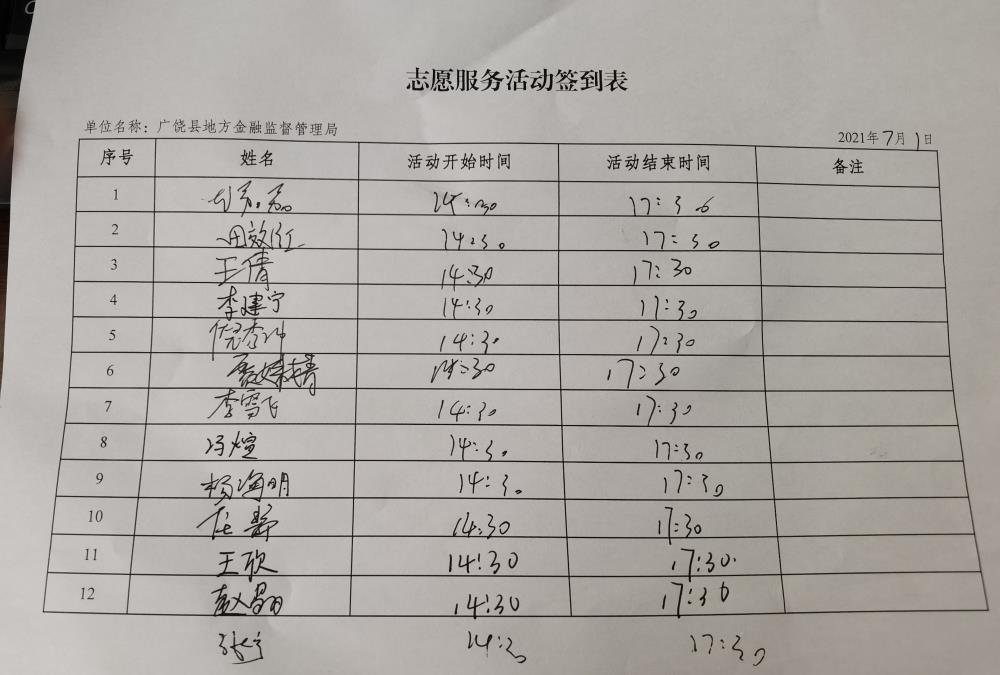 志愿服务活动签到表
单位名称：广饶县地方金融监督管理局
2021年7月1日
序号 姓名 活动开始时间 活动结束时间 备注
1 17:30
2 田效红 14:30 17:30
3 王倩 14:30 17:30
4 李建宁 14:30 17:30
5 14:30 17:30
6 14:30 17:30
7 李雪飞 14:30 17:30
8 冯煊 14:30 17:30
9 杨海明 14:30 17:30
10 任静 14:30 17:30
11 王欣 14:30 17:30
12 14:30 17:30
张宁 14:30 17:30